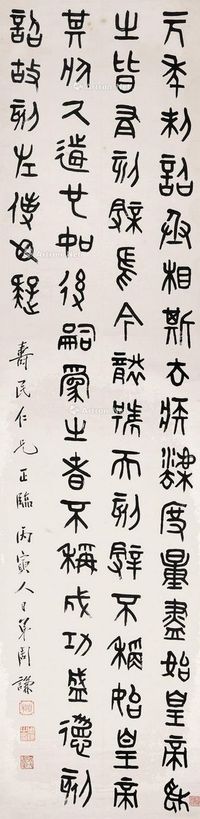 元年制詔丞相斯去疾灋度量盡始皇帝為
之皆有刻辭焉今襲號而刻辭不稱始皇帝
其於久遠也如後嗣為之者不稱成功盛德刻
詔故刻左使毋疑
壽民仁兄正臨 丙寅人日弟周謙